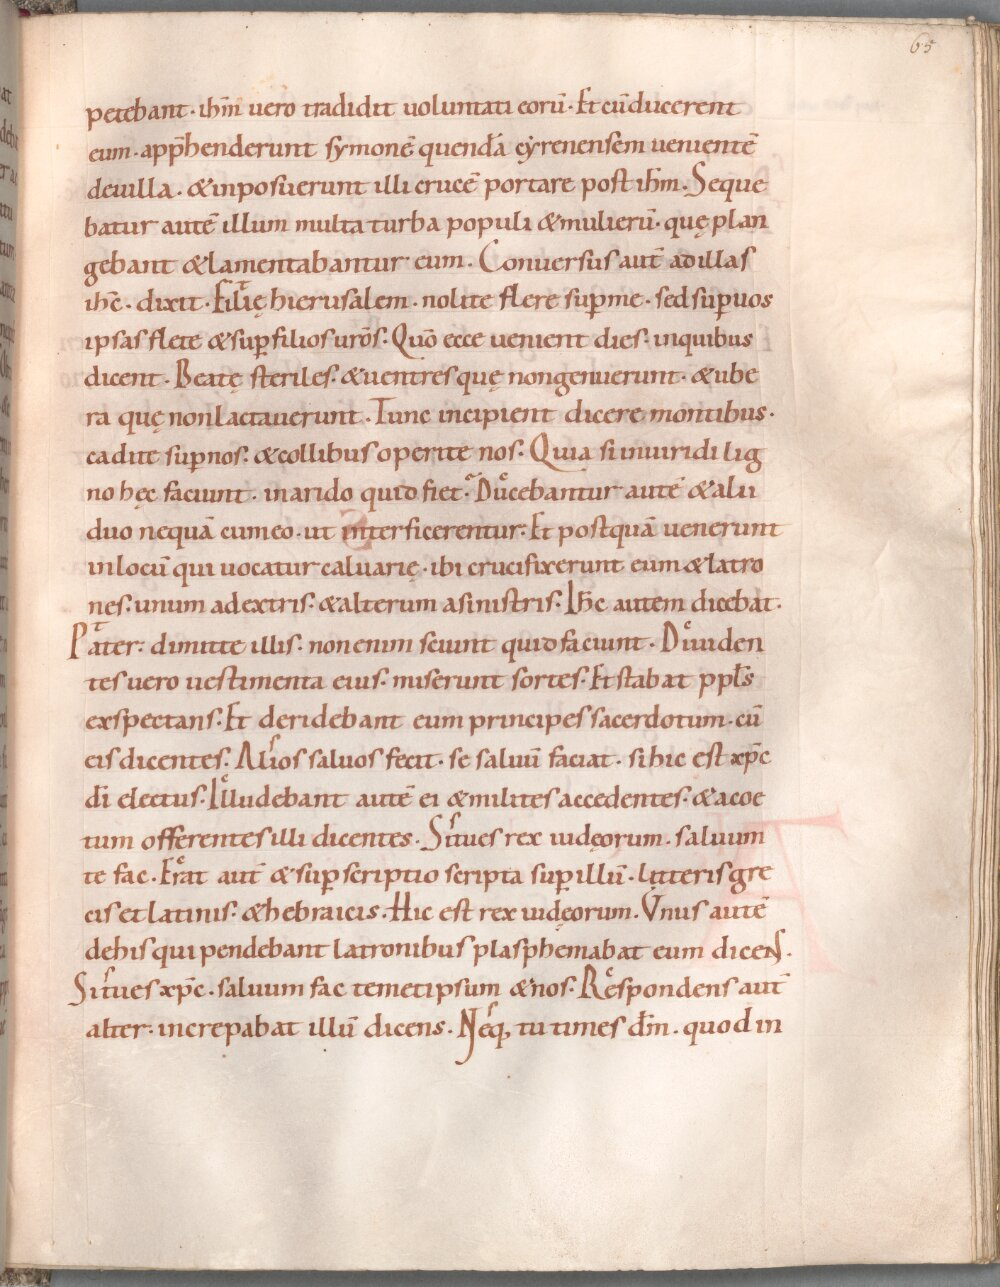 65
petebant · ihm̄ vero tradidit uoluntati eorū · Et cū ducerent
eum · app̄henderunt symonē quendā cẏrenensem uenientē
deuilla · & inposuerunt illi crucē portare post ihm̄ · Seque
batur autē illum multa turba populi & mulierū · quę plan
gebant & lamentabantur eum · Conuersus aut̄ ad illas
ihc̄ · dixit · Filię hierusalem · nolite flere sup̄ me · sed sup̄ uos
ipsas flete & sup̄ filios uros̄ · Quō ecce uenient dies · in quibus
dicent · Beatę steriles · & uentres quę non genuerunt · & ube
ra quę non lactauerunt · Tunc incipient dicere montibus ·
cadite sup̄ nos · & collibus operite nos · Quia si in uiridi lig
no hęc faciunt · in arido quid fiet · Ducebantur autē & alii
duo nequā cum eo · ut interficerentur · Et postquā uenerunt
in locū qui uocatur caluarię · ibi crucifixerunt eum & latro
nes · unum a dextris · & alterum a sinistris · Ihc̄ autem dicebat ·
Pater · dimitte illis · non enim sciunt quid faciunt · Diuiden
tes uero uestimenta eius · miserunt sortes · Et stabat ppls̄
exspectans · Et deridebant eum principes sacerdotum · cū
eis dicentes · Alios saluos fecit · se saluū faciat · si hic est xp̄c
dī electus · Illudebant autē ei & milites accedentes · & ace
tum offerentes illi dicentes · Si tu es rex iudęorum · saluum
te fac · Erat aut̄ & sup̄scriptio scripta sup̄ illū · litteris gre
cis et latinis · & hebraicis · Hic est rex iudęorum · Vnus autē
de his qui pendebant latronibus plasphemabat eum dicens ·
Si tu es xp̄c · saluum fac temetipsum & nos · Respondens aut̄
alter · increpabat illū dicens · Neq; tu times dm̄ · quod in